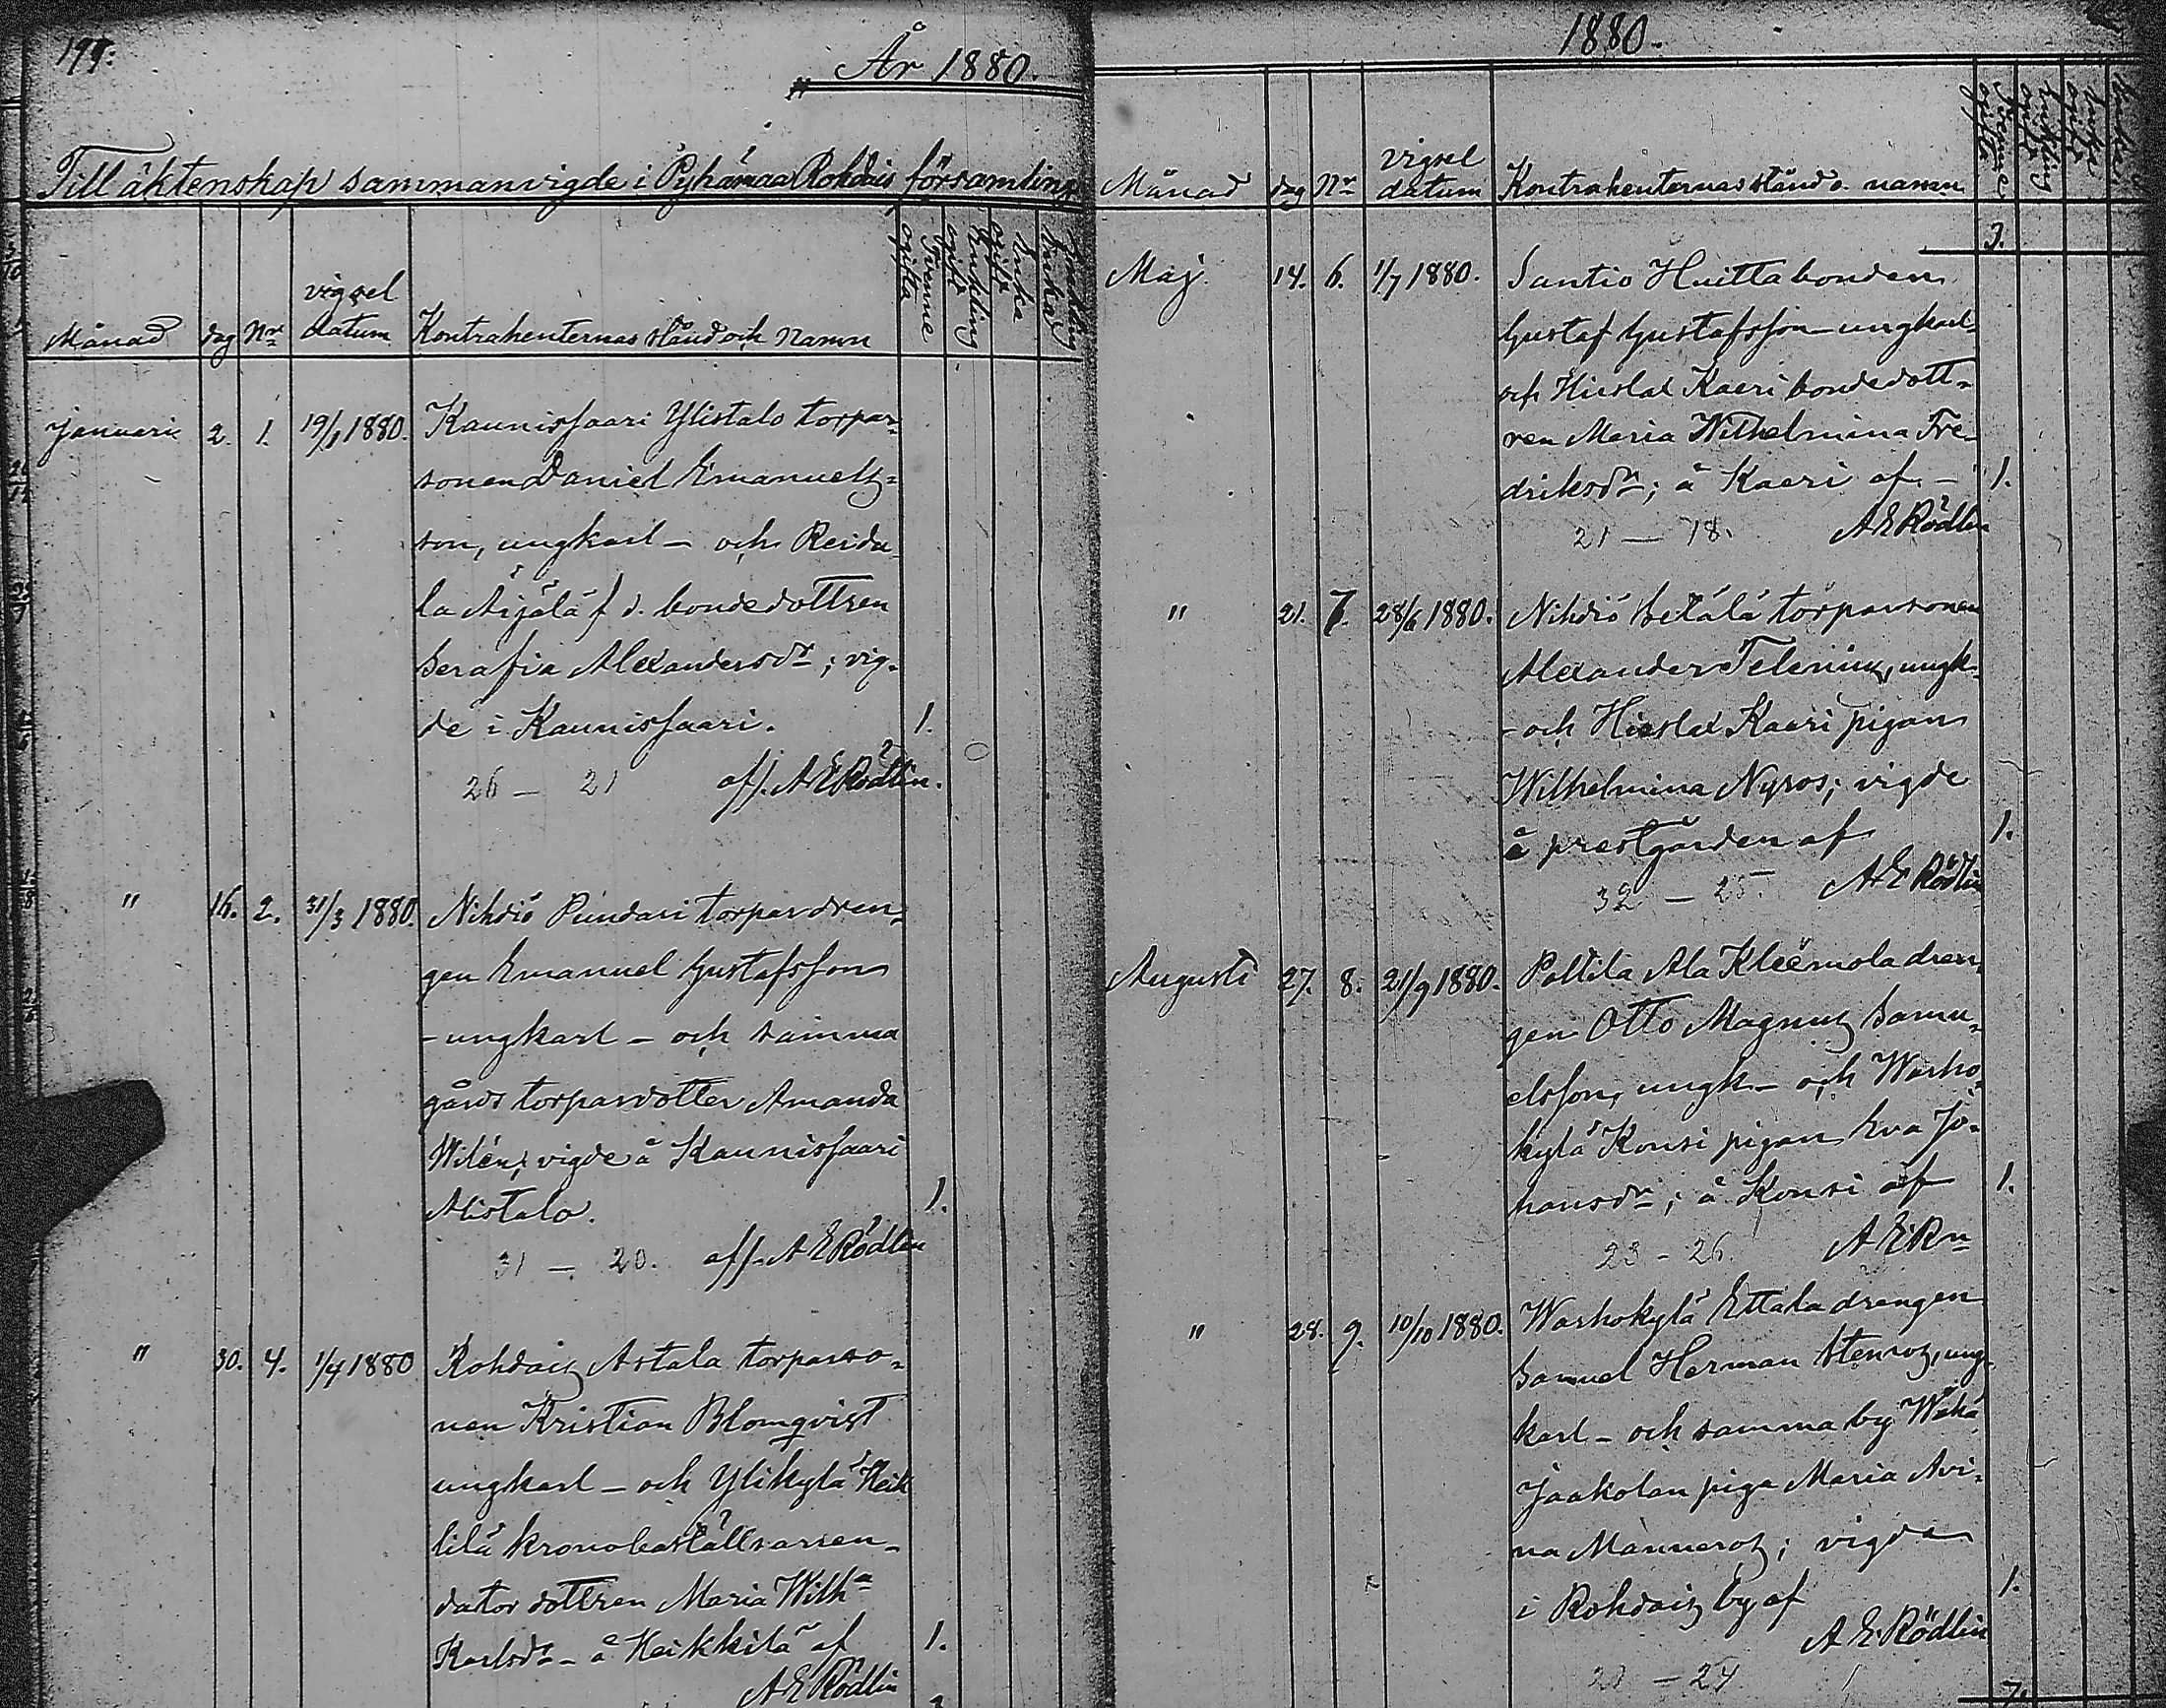 År 1880.
Till äktenskap sammanvigde i Pyhämaa Rohdais församling
Månad dag Nr vigsel datum Kontrahenternas stånd och namn
Januari 2. 1. 19/1 1880. Kaunissaari Ylistalo torpar-
sonen Daniel Emanuels-
son, ungkarl – och Reidu-
la Äijälä f d. bondedottren
Serafia Alexandersdr; vig-
de i Kaunissaari. 1.
26 – 21 aff. A E Rödlin.
" 16. 2. 31/3 1880. Nihdiö Pundari torpardren-
gen Emanuel Gustafsson
– ungkarl – och samma
gårds torpardotter Amanda
Wilén; vigde å Kaunissaari
Alistalo. 1.
31 – 20. aff. A E Rödlin
" 30. 4. 1/4 1880 Rohdais Astala torparso-
nen Kristian Blomqvist
ungkarl – och Ylikylä Heik
kilä kronobeställsarren-
dator dottren Maria Wilh:a
Karlsdr – å Heikkilä af 1.
A E Rödlin
1880.
Månad dag Nr vigsel datum Kontrahenternas stånd o. namn
3.
Maj. 14. 6. 1/7 1880. Santio Huitta bonden
Gustaf Gustafsson – ungkarl
och Hirslax Kaeri bondedott-
ren Maria Wilhelmina Fre-
driksdr; å Kaari af – 1.
21 – 18. A E Rödlin
" 21. 7. 28/6 1880. Nihdiö Setälä torparsonen
Alexander Telenius, ungk.
– och Hirslax Kaari pigan
Wilhelmina Nyros; vigde
å prestgården af 1.
32 – 25. A E Rödlin
Augusti 27. 8. 21/9 1880. Polttila Ala Kleemola dren-
gen Otto Magnus Samu-
elsson, ungk. – och Warho-
kylä Konsi pigan Eva Jo-
hansdr; å Konsi af 1.
23 – 26. A E Rn
" 28. 9. 10/10 1880. Warhokylä Ettala drengen
Samuel Herman Stenros, ung-
karl – och samma by Wähä
Jaakolan piga Maria Avi-
na Manneros; vigde
i Rohdais by af 1.
A E Rödlin
23 – 24
7.